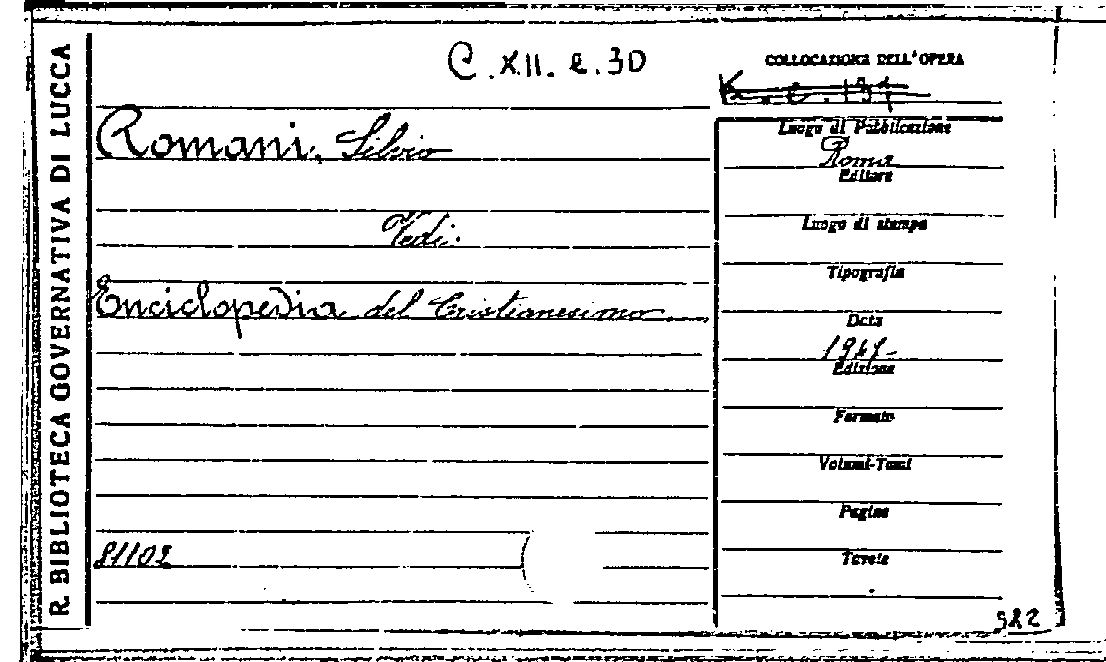 R. BIBLIOTECA GOVERNATIVA DI LUCCA
C. XII. e. 30
COLLOCAZIONE DELL'OPERA
Romani, Silvio
Vedi:
Enciclopedia del Cristianesimo
81102
Luogo di Pubblicazione
Roma
Editore
Luogo di stampa
Tipografia
Data
Edizione
Formato
Volumi-Tomi
Pagine
Tavole
982